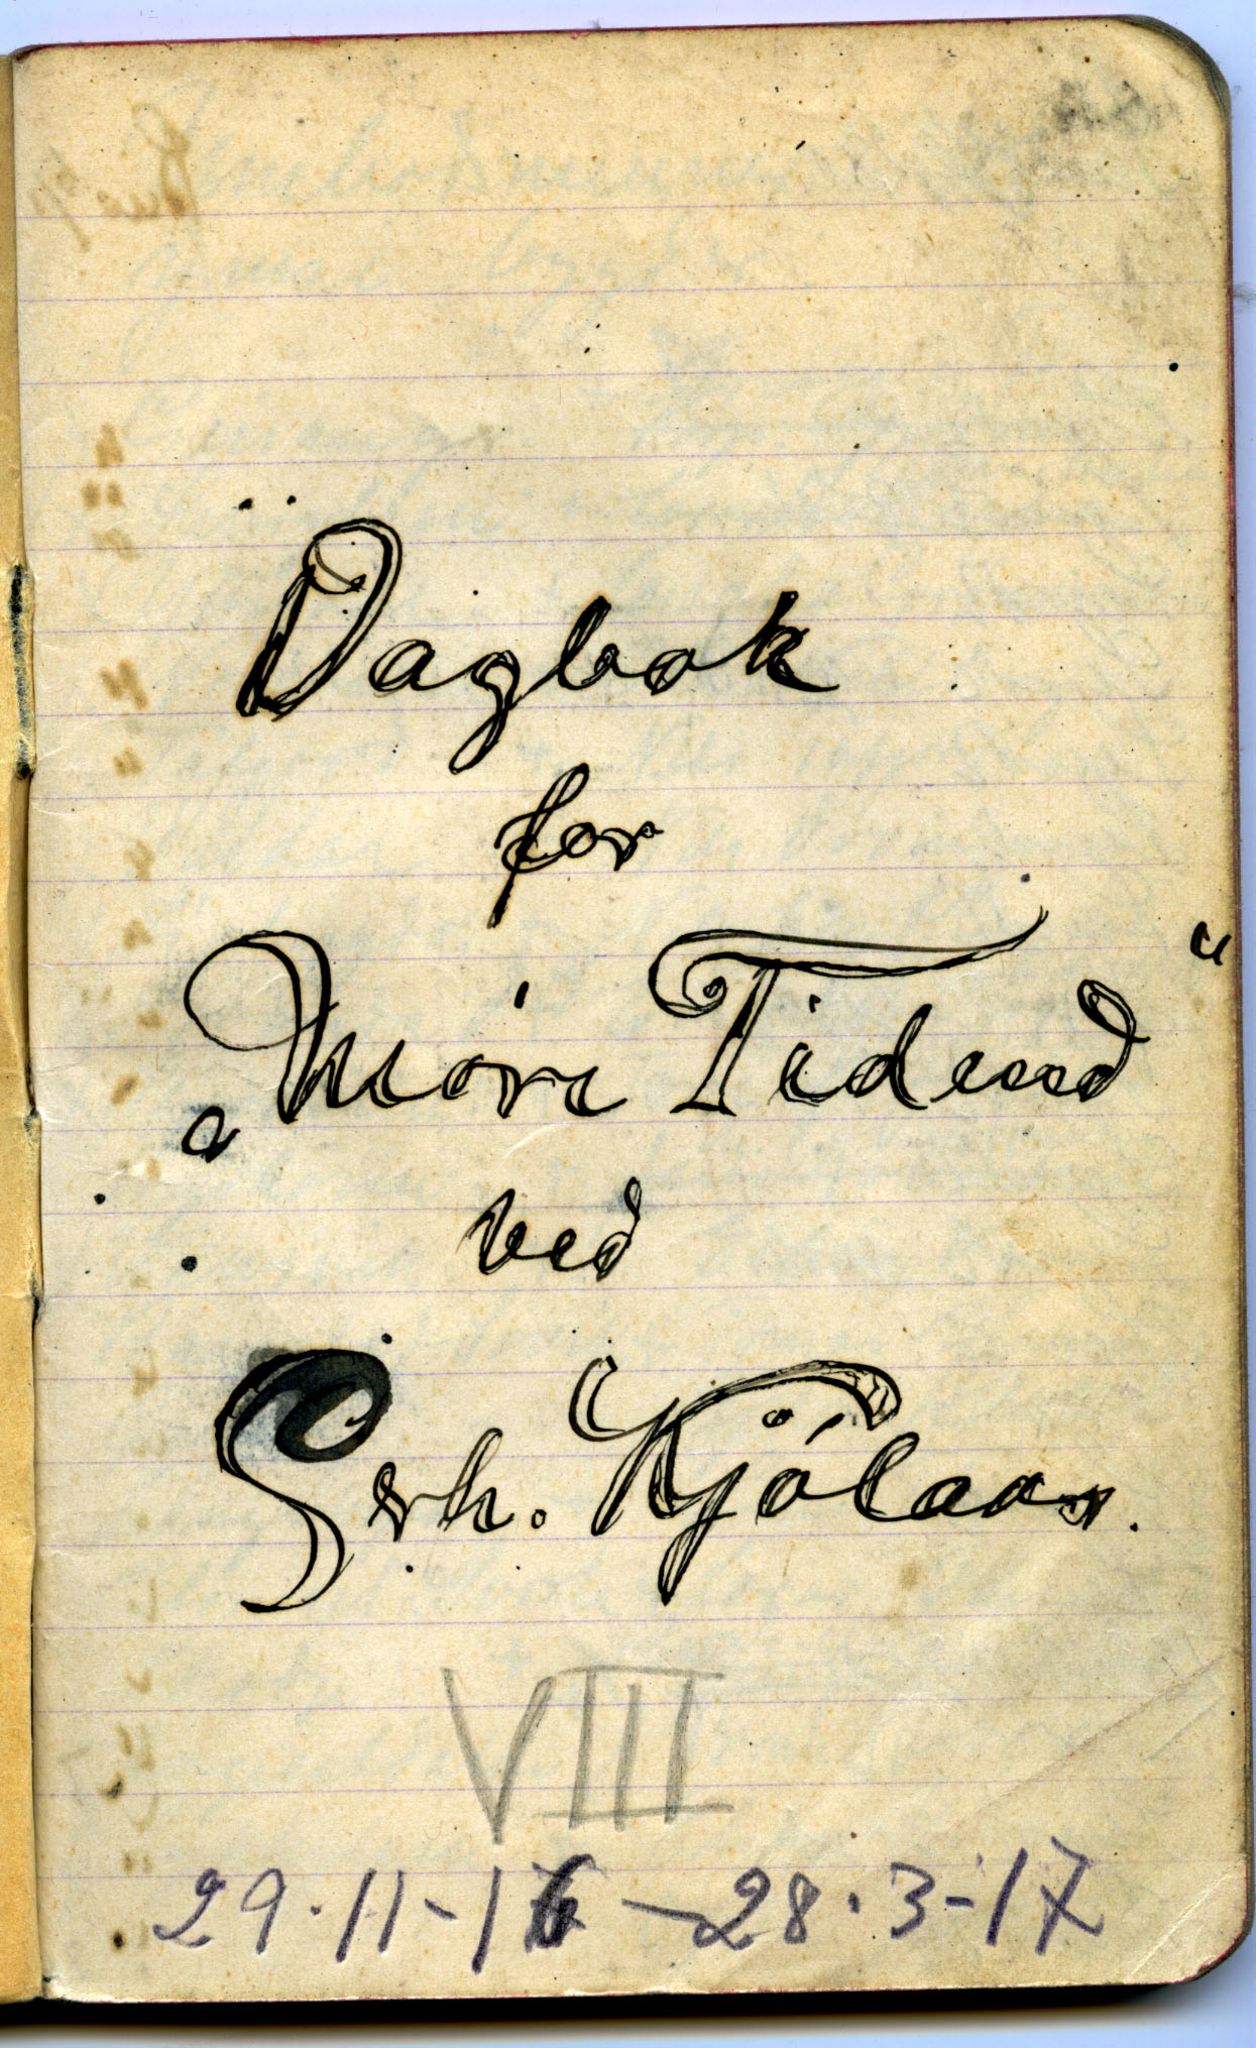 Dagbok
for
„Møre Tidend“
ved
Gerh. Kjølaas.
VIII
29.11-16 — 28.3-17